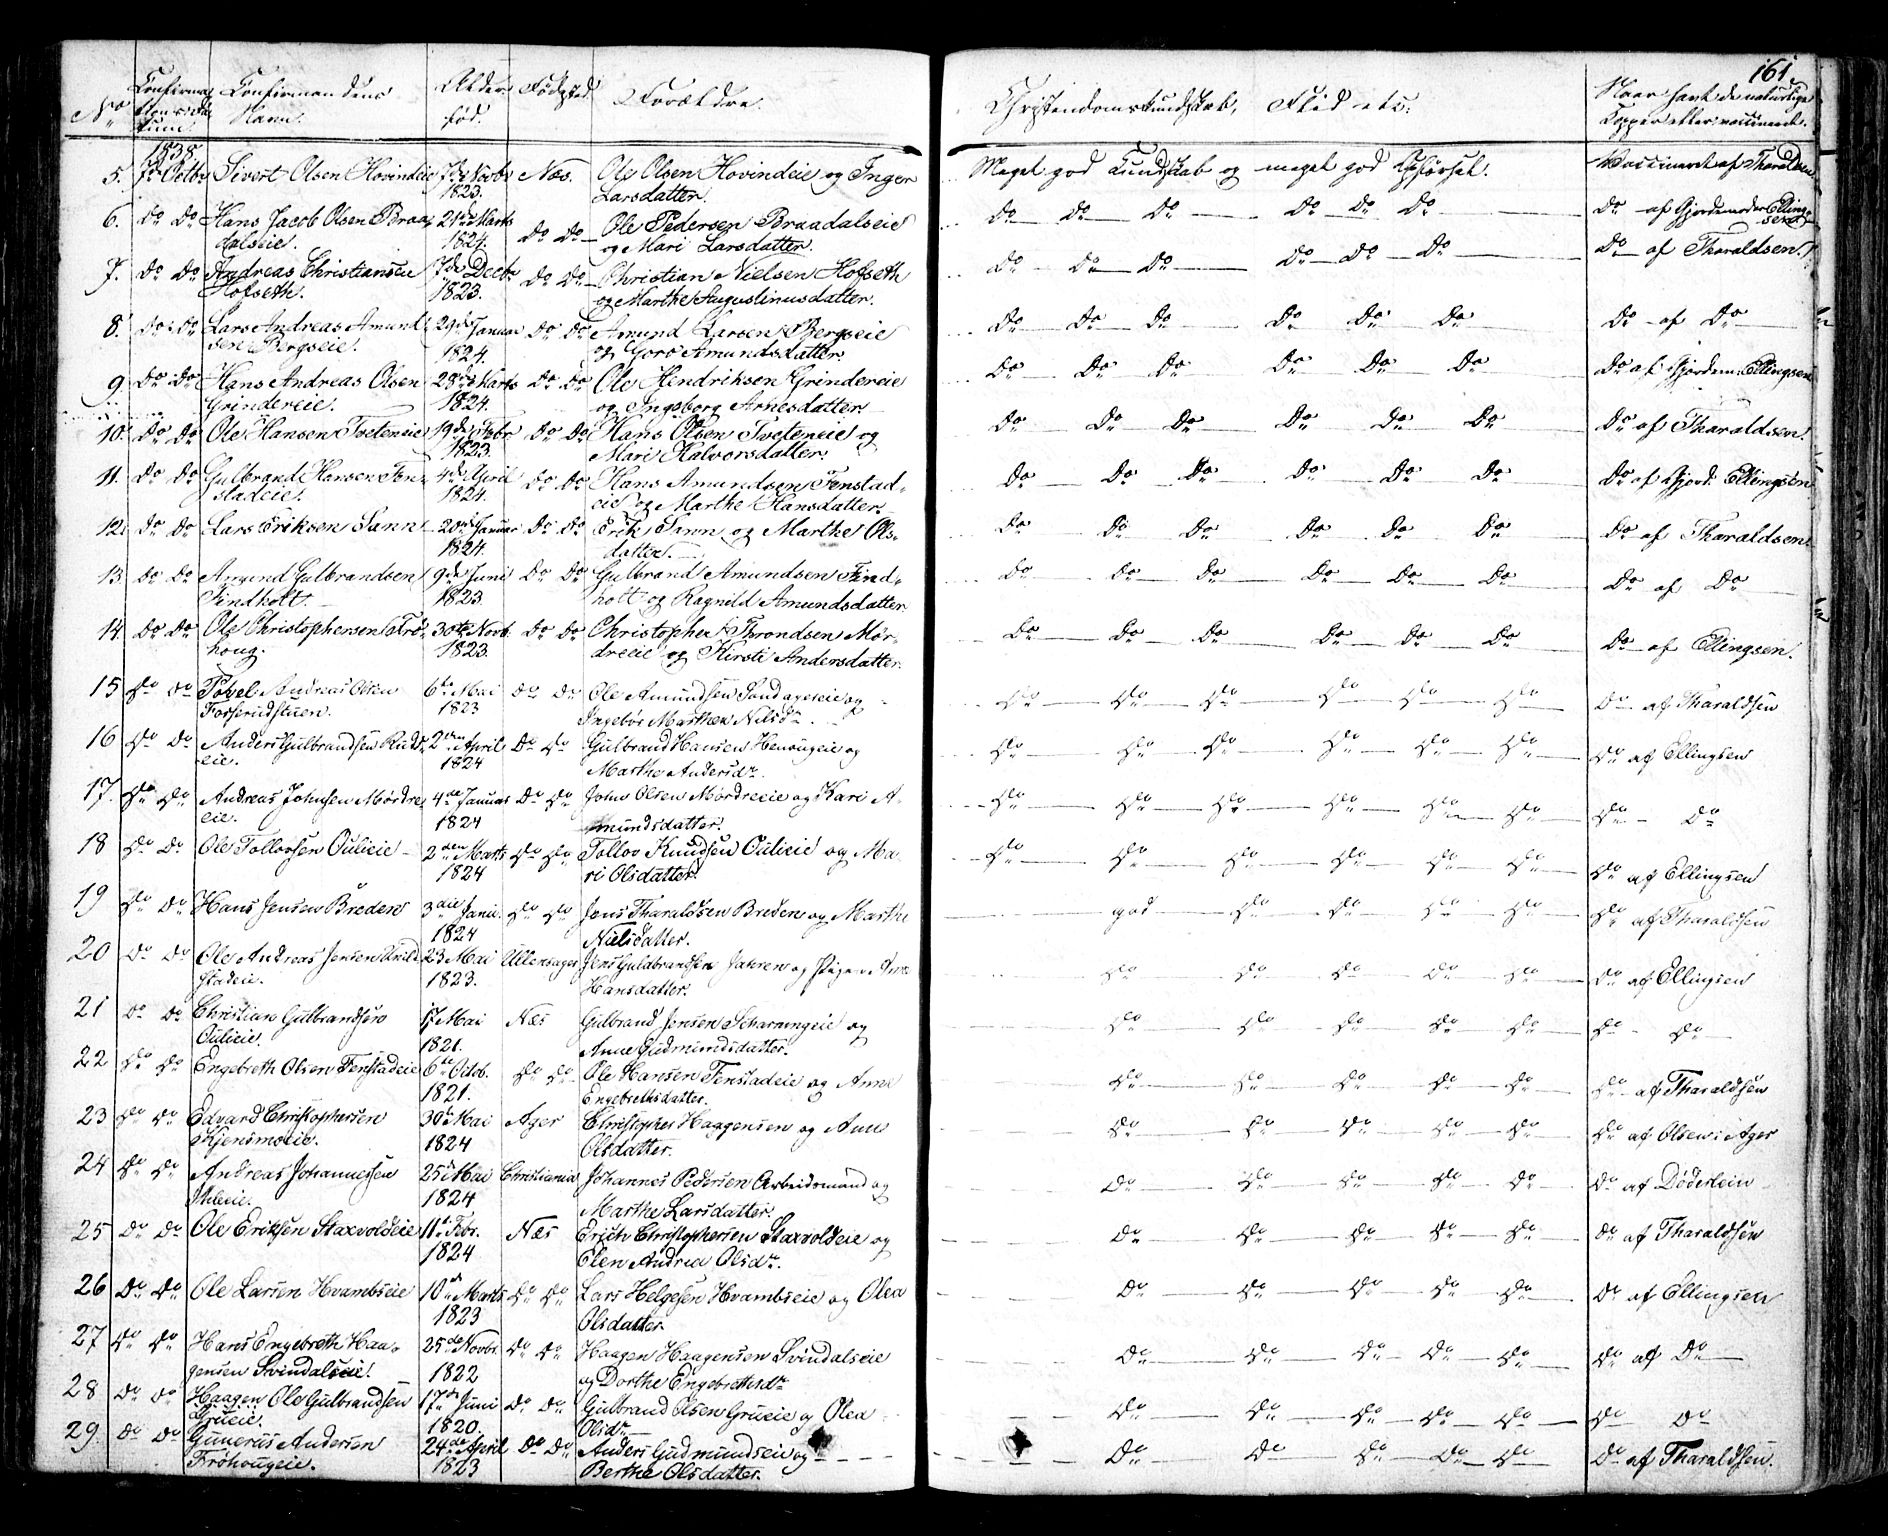 161
No Confirmations Datum. Confirmandens Navn. Alder fød. Fødested Forældre. Christendomskundskab, Flid etc: Naar havt de naturlige Kopper eller vaccineret.
1838
5. 7de Octbr Sivert Olsen Hovindeie 7de Novbr 1823. Næs. Ole Olsen Hovindeie og Inger Larsdatter. Meget god Kundskab og meget god Opførsel. Vaccineret af Tharaldsen
6. Do Do Hans Jacob Olsen Braadalseie. 21de Marts 1824. Do Do Ole Pedersen Braadalseie og Mari Larsdatter. Do Do Do Do Do Do Do af Gjordemoder Ellingsen
7. Do Do Andreas Christiansen Hofseth. 7de Decbr 1823. Do Do Christian Nielsen Hofseth og Marthe Augustinusdatter. Do Do Do Do Do Do Do af Tharaldsen.
8. Do Do Lars Andreas Amundsen Bergseie. 29de Januar 1824. Do Do Amund Larsen Bergseie og Goro Amundsdatter. Do Do Do Do Do Do Do af Do
9. Do Do Hans Andreas Olsen Grindereie. 28de Marts 1824. Do Do Ole Hendriksen Grindereie og Ingeborg Arnesdatter Do Do Do Do Do Do Do af Gjordem: Ellingsen
10. Do Do Ole Hansen Tveteneie 19de Febr 1823. Do Do Hans Olsen Tveteneie og Mari Halvorsdatter. Do Do Do Do Do Do Do af Tharaldsen.
11. Do Do Gulbrand Hansen Fenstadeie. 4de April 1824. Do Do Hans Amundsen Fenstadeie og Marthe Hansdatter. Do Do Do Do Do Do Do af Gjord: Ellingsen
12. Do Do Lars Eriksen Sann 20de Januar 1824. Do Do Erik Sann og Marthe Olsdatter. Do Do Do Do Do Do Do af Tharaldsen.
13. Do Do Amund Gulbrandsen Findholt. 9de Juni 1823. Do Do Gulbrand Amundsen Findholt og Ragnild Amundsdatter Do Do Do Do Do Do Do af Do
14. Do Do Ole Christophersen Frøhoug. 30te Novb. 1823. Do Do Christopher Throndsen Mørdreeie og Kirsti Andersdatter. Do Do Do Do Do Do Do af Ellingsen.
15 Do Do Povel Andreas Olsen Forserudstuen. 6te Mai 1823 Do Do Ole Amundsen Sandageseie og Ingebor Marthea Nilsdr. Do Do Do Do Do Do Do af Tharaldsen
16 Do Do Anders Gulbrandsen Rudseie. 2den April 1824 Do Do Gulbrand Hansen Henougeie og Marthe Andersdr. Do Do Do Do Do Do Do af Ellingsen
17. Do Do Andreas Johnsen Mørdreeie. 4de Januar 1824 Do Do John Olsen Mørdreeie og Kari Amundsdatter. Do Do Do Do Do Do Do Do
18 Do Do Ole Tollovsen Oulieie 2den Marts 1824 Do Do Tollov Knudsen Oulieie og Mari Olsdatter. Do Do Do Do Do Do Do af Ellingsen
19 Do Do Hans Jensen Breden 3die Janu. 1824 Do Do Jens Tharaldsen Breden og Marthe Nielsdatter. god Do Do Do Do Do af Tharaldsen
20 Do Do Ole Andreas Jensen stadeie. 23 Mai 1823. Ullensager Jens Guldbrandsen Jahren og Pige Anne Hansdatter. Do Do Do Do Do Do af Ellingsen
21 Do Do Christian Gulbrandsen Oulieie. 17 Mai 1821. Næs Gulbrand Jensen Scharningeie og Anne Gudmundsdatter. Do Do Do Do Do Do Do
22 Do Do Engebreth Olsen Fenstadeie 6te Octob. 1821. Do Do Ole Hansen Fenstadeie og Anne Engebrethsdatter. Do Do Do Do Do Do af Tharaldsen
23 Do Do Edvard Christophersen Kjensmoeie. 30te Mai 1824 Ager Christopher Haagensen og Anne Olsdatter. Do Do Do Do Do Do af Olsen i Ager
24 Do Do Andreas Johannessen 25de Mai 1824 Christiania Johannes Pedersen Arbeidsmand og Marthe Larsdatter. Do Do Do Do Do Do af Døderlein
25 Do Do Ole Eriksen Staxvoldeie 11te Febr. 1824 Næs Erich Christophersen Staxvoldeie og Elen Andrea Olsdr. Do Do Do Do Do Do af Tharaldsen
26 Do Do Ole Larsen Hvambseie 10de Marts 1823 Do Do Lars Helgesen Hvambseie og Olea Olsdatter. Do Do Do Do Do Do af Ellingsen
27 Do Do Hans Engebreth Haagensen Svindalseie. 25de Novbr 1822 Do Do Haagen Haagensen Svindalseie og Dorthe Engebrethsdr Do Do Do Do Do Do af Do
28 Do Do Haagen Ole Gulbrandsen Grueie. 17de Juni 1820. Do Do Gulbrand Olsen Grueie og Olea Olsdr Do Do Do Do Do Do Do
29. Do Do Gunerus Andersen Frøhougeie. 24de April 1823 Do Do Anders Gudmundseie og Berthe Olsdatter. Do Do Do Do Do Do af Tharaldsen.